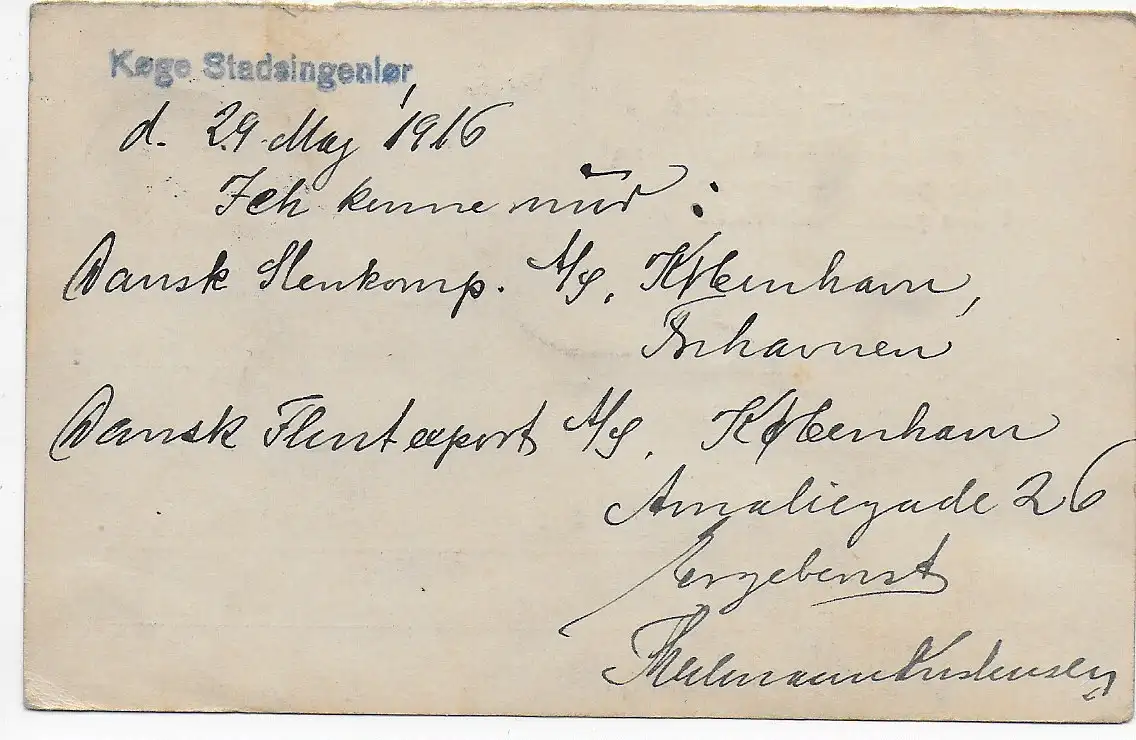 Køge Stadsingeniør
d. 29. Maj 1916
Ich kenne nur :
Dansk Stenkomp. A/S, København,
Frihavnen
Dansk Flintexport A/S, København
Amaliegade 26
Ergebenst
Kristensen